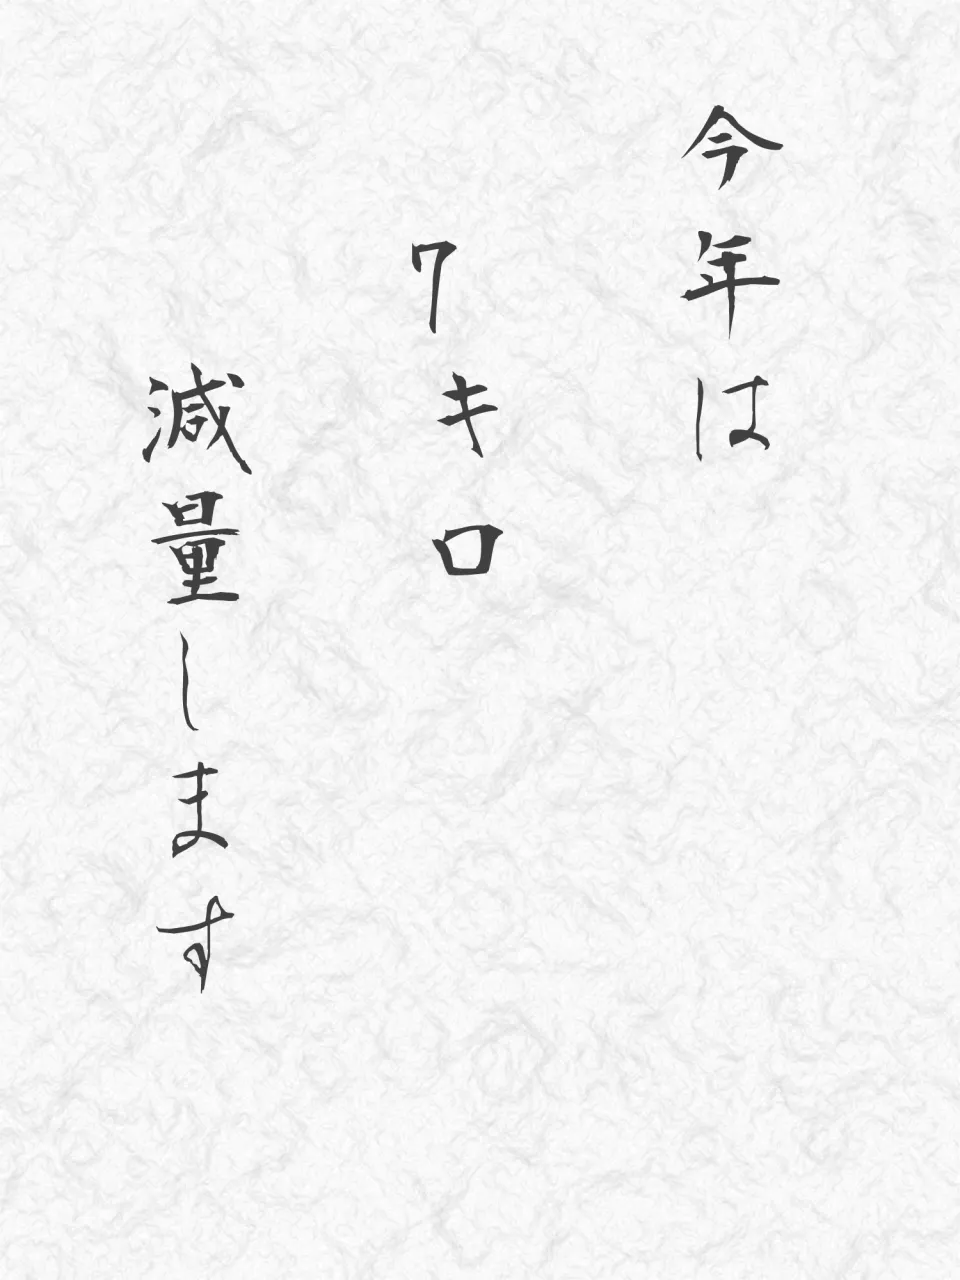 今年は
7キロ
減量します